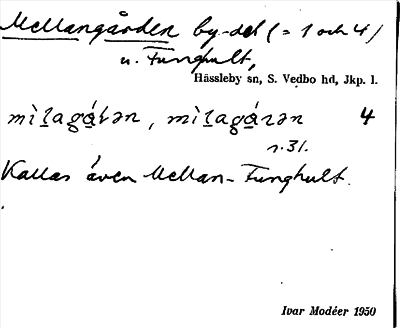 Mellangården by-del (= 1 och 4)
u. Funghult,
Hässleby sn, S. Vedbo hd, Jkp. l.
mìl̠agá̠rən, mìl̠agá̠rən 4
r. 31.
Kallas även Mellan-Funghult.
Ivar Modéer 1950